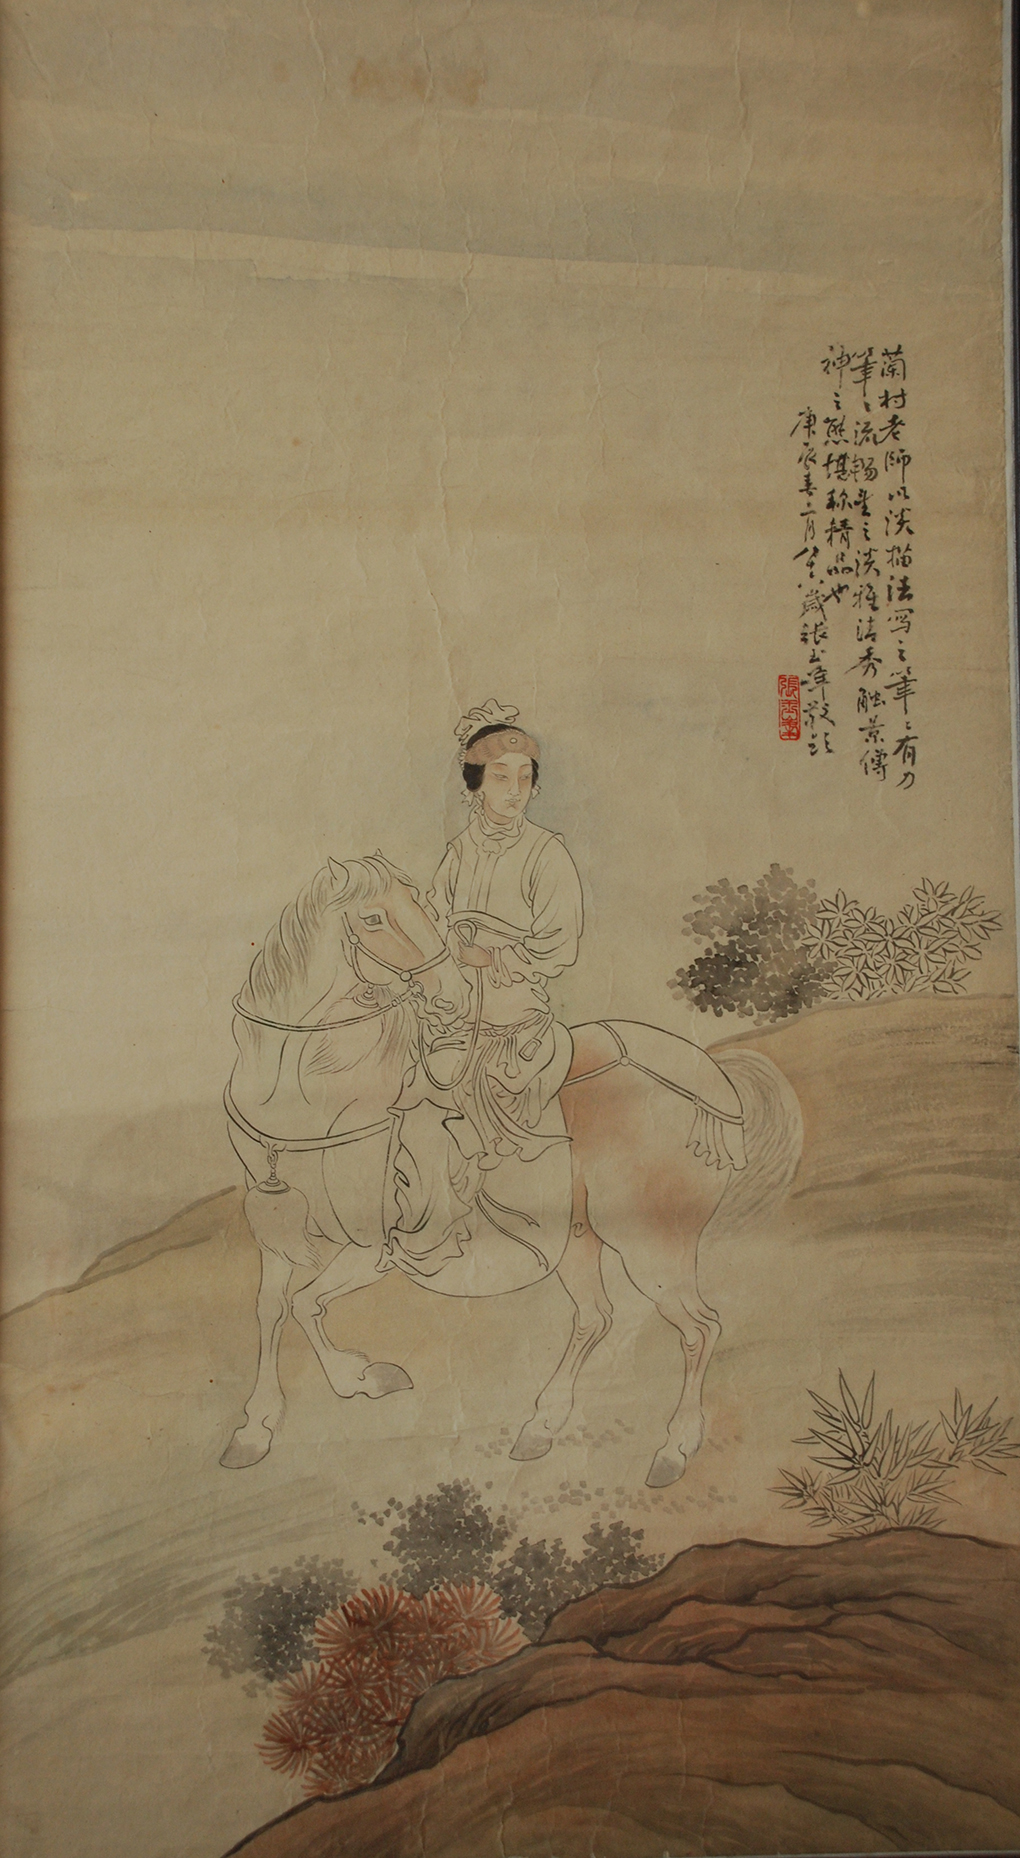 蘭村老師以淡描法写之筆〻有力
筆〻流暢墨之淡雅清秀融景傳
神之態堪称精品也
庚辰春二月八十八歲張玉峯敬題